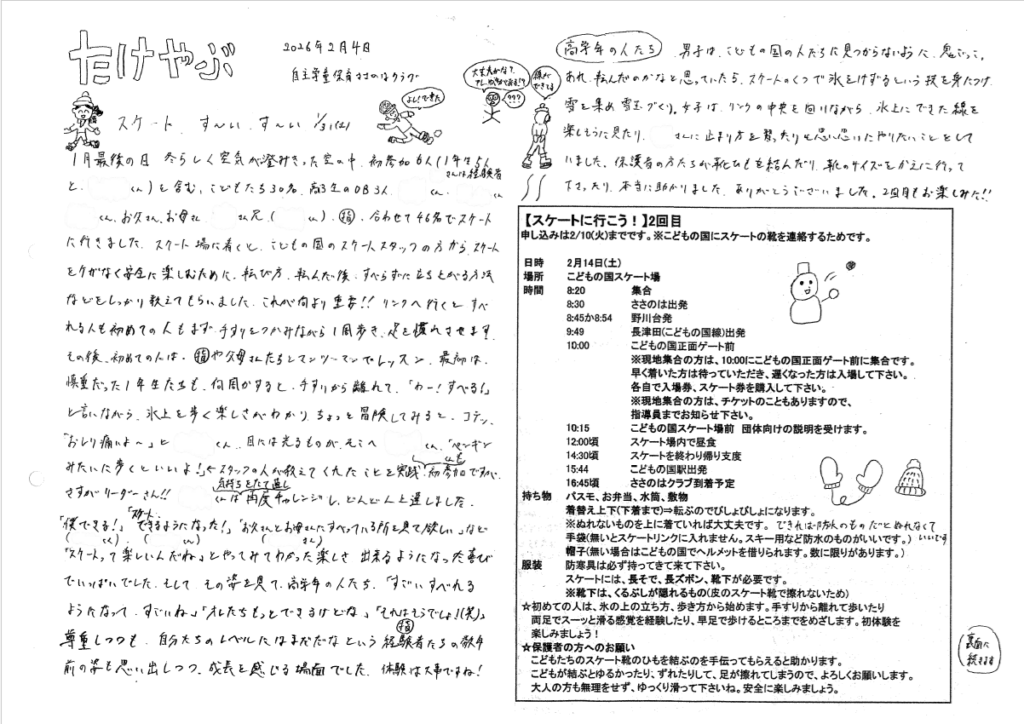 たけやぶ
2026年2月4日
自主学童保育ささのはクラブ
スケート すーい、すーい 1/31(土)
よし!できた
大丈夫かな?
???
1月最後の日 冬らしく空気が澄みきった空の中、初参加6人(1年生5人
さんは経験者
と、 くん)を含む、こどもたち30名、高3生のOB3人、 くん、
くん、お父さん、お母さん さん兄( くん)、合わせて46名でスケート
に行きました。スケート場に着くと、こどもの国のスケートスタッフの方から、スケート
をケガなく安全に楽しむために、転び方、転んだ後、すべらずに立ち上がる方法
などをしっかり教えてもらいました。これが何より重要!! リンクへ行くと すべ
れる人も初めての人もまず、手すりをつかみながら1周歩き、足を慣れさせます。
その後、初めての人は、指やお父母さんたちとマンツーマンでレッスン。最初は、
慎重だった1年生たちも、何周かすると、手すりから離れて、「わー!すべる!」
と言いながら、氷上を歩く楽しさがわかり、ちょっと冒険してみると、コテン。
「おしり痛いよ〜」と くん、目には光るものが。そこへ くん、「ペンギン
みたいに歩くといいよ!」とスタッフの人が教えてくれたことを実践。 くんも初参加ですが、
さすがリーダーさん!! 気持ちを立て直し
くんは再度チャレンジし、どんどん上達しました。
「僕できる!」「できるようになった!」「お父さんとお母さんにすべっている所を見て欲しい」など
( くん) ( くん) ( さん)
「スケートって楽しいんだね」とやってみてわかった楽しさ 出来るようになった喜び
でいっぱいでした。そして その姿を見て、高学年の人たち、「すごいすべれる
ようになって、すごいね」「オレたちもっとできるけどな」「それはそうでしょ!(笑)」指
尊重しつつも、自分たちのレベルにはまだだなという経験者たちの数年
前の姿も思い出しつつ、成長を感じる場面でした。体験は大事ですね!
高学年の人たち 男子は、こどもの国の人たちに見つからないように、鬼ごっこ。
あれ、転んだのかなと思っていたら、スケートのくつで氷をけずるという技を身につけ
雪を集め雪玉づくり。女子は、リンクの中央を回りながら、氷上にできた線を
楽しそうに見たり、 さんに止まり方を習ったりと思い思いにやりたいことをして
いました。保護者の方たちが靴ひもを結んだり、靴のサイズをかえに行って
下さったり、本当に助かりました。ありがとうございました。2回目もお楽しみに!!
【スケートに行こう!】2回目
申し込みは2/10(火)までです。※こどもの国にスケートの靴を連絡するためです。
日時 2月14日(土)
場所 こどもの国スケート場
時間 8:20 集合
8:30 ささのは出発
8:45か8:54 野川台発
9:49 長津田(こどもの国線)出発
10:00 こどもの国正面ゲート前
※現地集合の方は、10:00にこどもの国正面ゲート前に集合です。
早く着いた方は待っていただき、遅くなった方は入場して下さい。
各自で入場券、スケート券を購入して下さい。
※現地集合の方は、チケットのこともありますので、
指導員までお知らせ下さい。
10:15 こどもの国スケート場前 団体向けの説明を受けます。
12:00頃 スケート場内で昼食
14:30頃 スケートを終わり帰り支度
15:44 こどもの国駅出発
16:45頃 ささのはクラブ到着予定
持ち物 パスモ、お弁当、水筒、敷物
着替え上下(下着まで)⇒転ぶのでびしょびしょになります。
※ぬれないものを上に着ていれば大丈夫です。 できれば防水のものだとぬれなくて
いいです
手袋(無いとスケートリンクに入れません。スキー用など防水のものがいいです。)
帽子(無い場合はこどもの国でヘルメットを借りられます。数に限りがあります。)
服装 防寒具は必ず持ってきて来て下さい。
スケートには、長そで、長ズボン、靴下が必要です。
※靴下は、くるぶしが隠れるもの(皮のスケート靴で擦れないため)
☆初めての人は、氷の上の立ち方、歩き方から始めます。手すりから離れて歩いたり
両足でスーッと滑る感覚を経験したり、早足で歩けるところまでをめざします。初体験を
楽しみましょう!
☆保護者の方へのお願い
こどもたちのスケート靴のひもを結ぶのを手伝ってもらえると助かります。
こどもが結ぶとゆるかったり、ずれたりして、足が擦れてしまうので、よろしくお願いします。
大人の方も無理をせず、ゆっくり滑って下さいね。安全に楽しみましょう。
裏面に
続きます